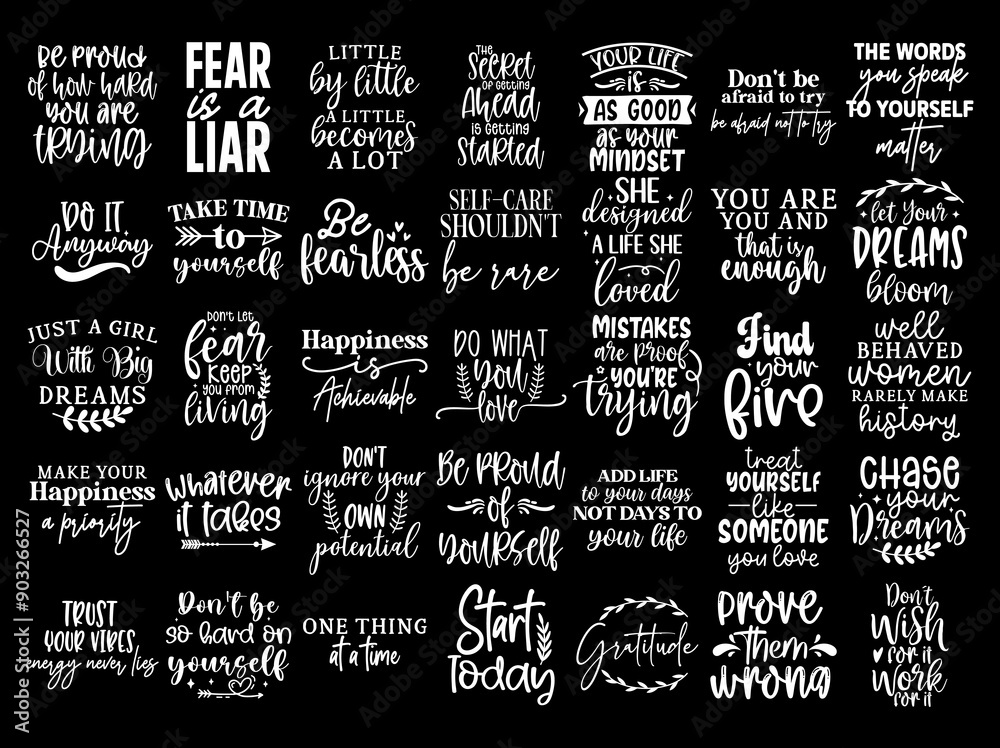 Be Proud
of how hard
you are
TRYING
FEAR
is a
LIAR
LITTLE
by little
A LITTLE
becomes
A LOT
THE
Secret
OF GETTING
Ahead
IS GETTING
Started
YOUR LIFE
is
AS GOOD
as your
MINDSET
Don't be
afraid to try
be afraid not to try
THE WORDS
you speak
TO YOURSELF
matter
DO IT
Anyway
TAKE TIME
to
yourself
Be
fearless
SELF-CARE
SHOULDN'T
be rare
SHE
designed
A LIFE SHE
loved
YOU ARE
YOU AND
that is
enough
let Your
DREAMS
bloom
JUST A GIRL
With Big
DREAMS
DON'T LET
fear
KEEP
YOU FROM
living
Happiness
is
Achievable
DO WHAT
you
love
MISTAKES
are proof
YOU'RE
trying
Find
your
fire
well
BEHAVED
women
RARELY MAKE
history
MAKE YOUR
Happiness
a priority
whatever
it takes
DON'T
ignore your
OWN
potential
Be PROUD
of
yourself
ADD LIFE
to your days
NOT DAYS TO
your life
treat
YOURSELF
like
SOMEONE
you love
CHASE
your
Dreams
TRUST
YOUR VIBES
energy never lies
Don't be
so hard on
yourself
ONE THING
at a time
Start
Today
Gratitude
prove
them
wrong
Don't
Wish
for it
Work
for it
Adobe Stock | #903266527